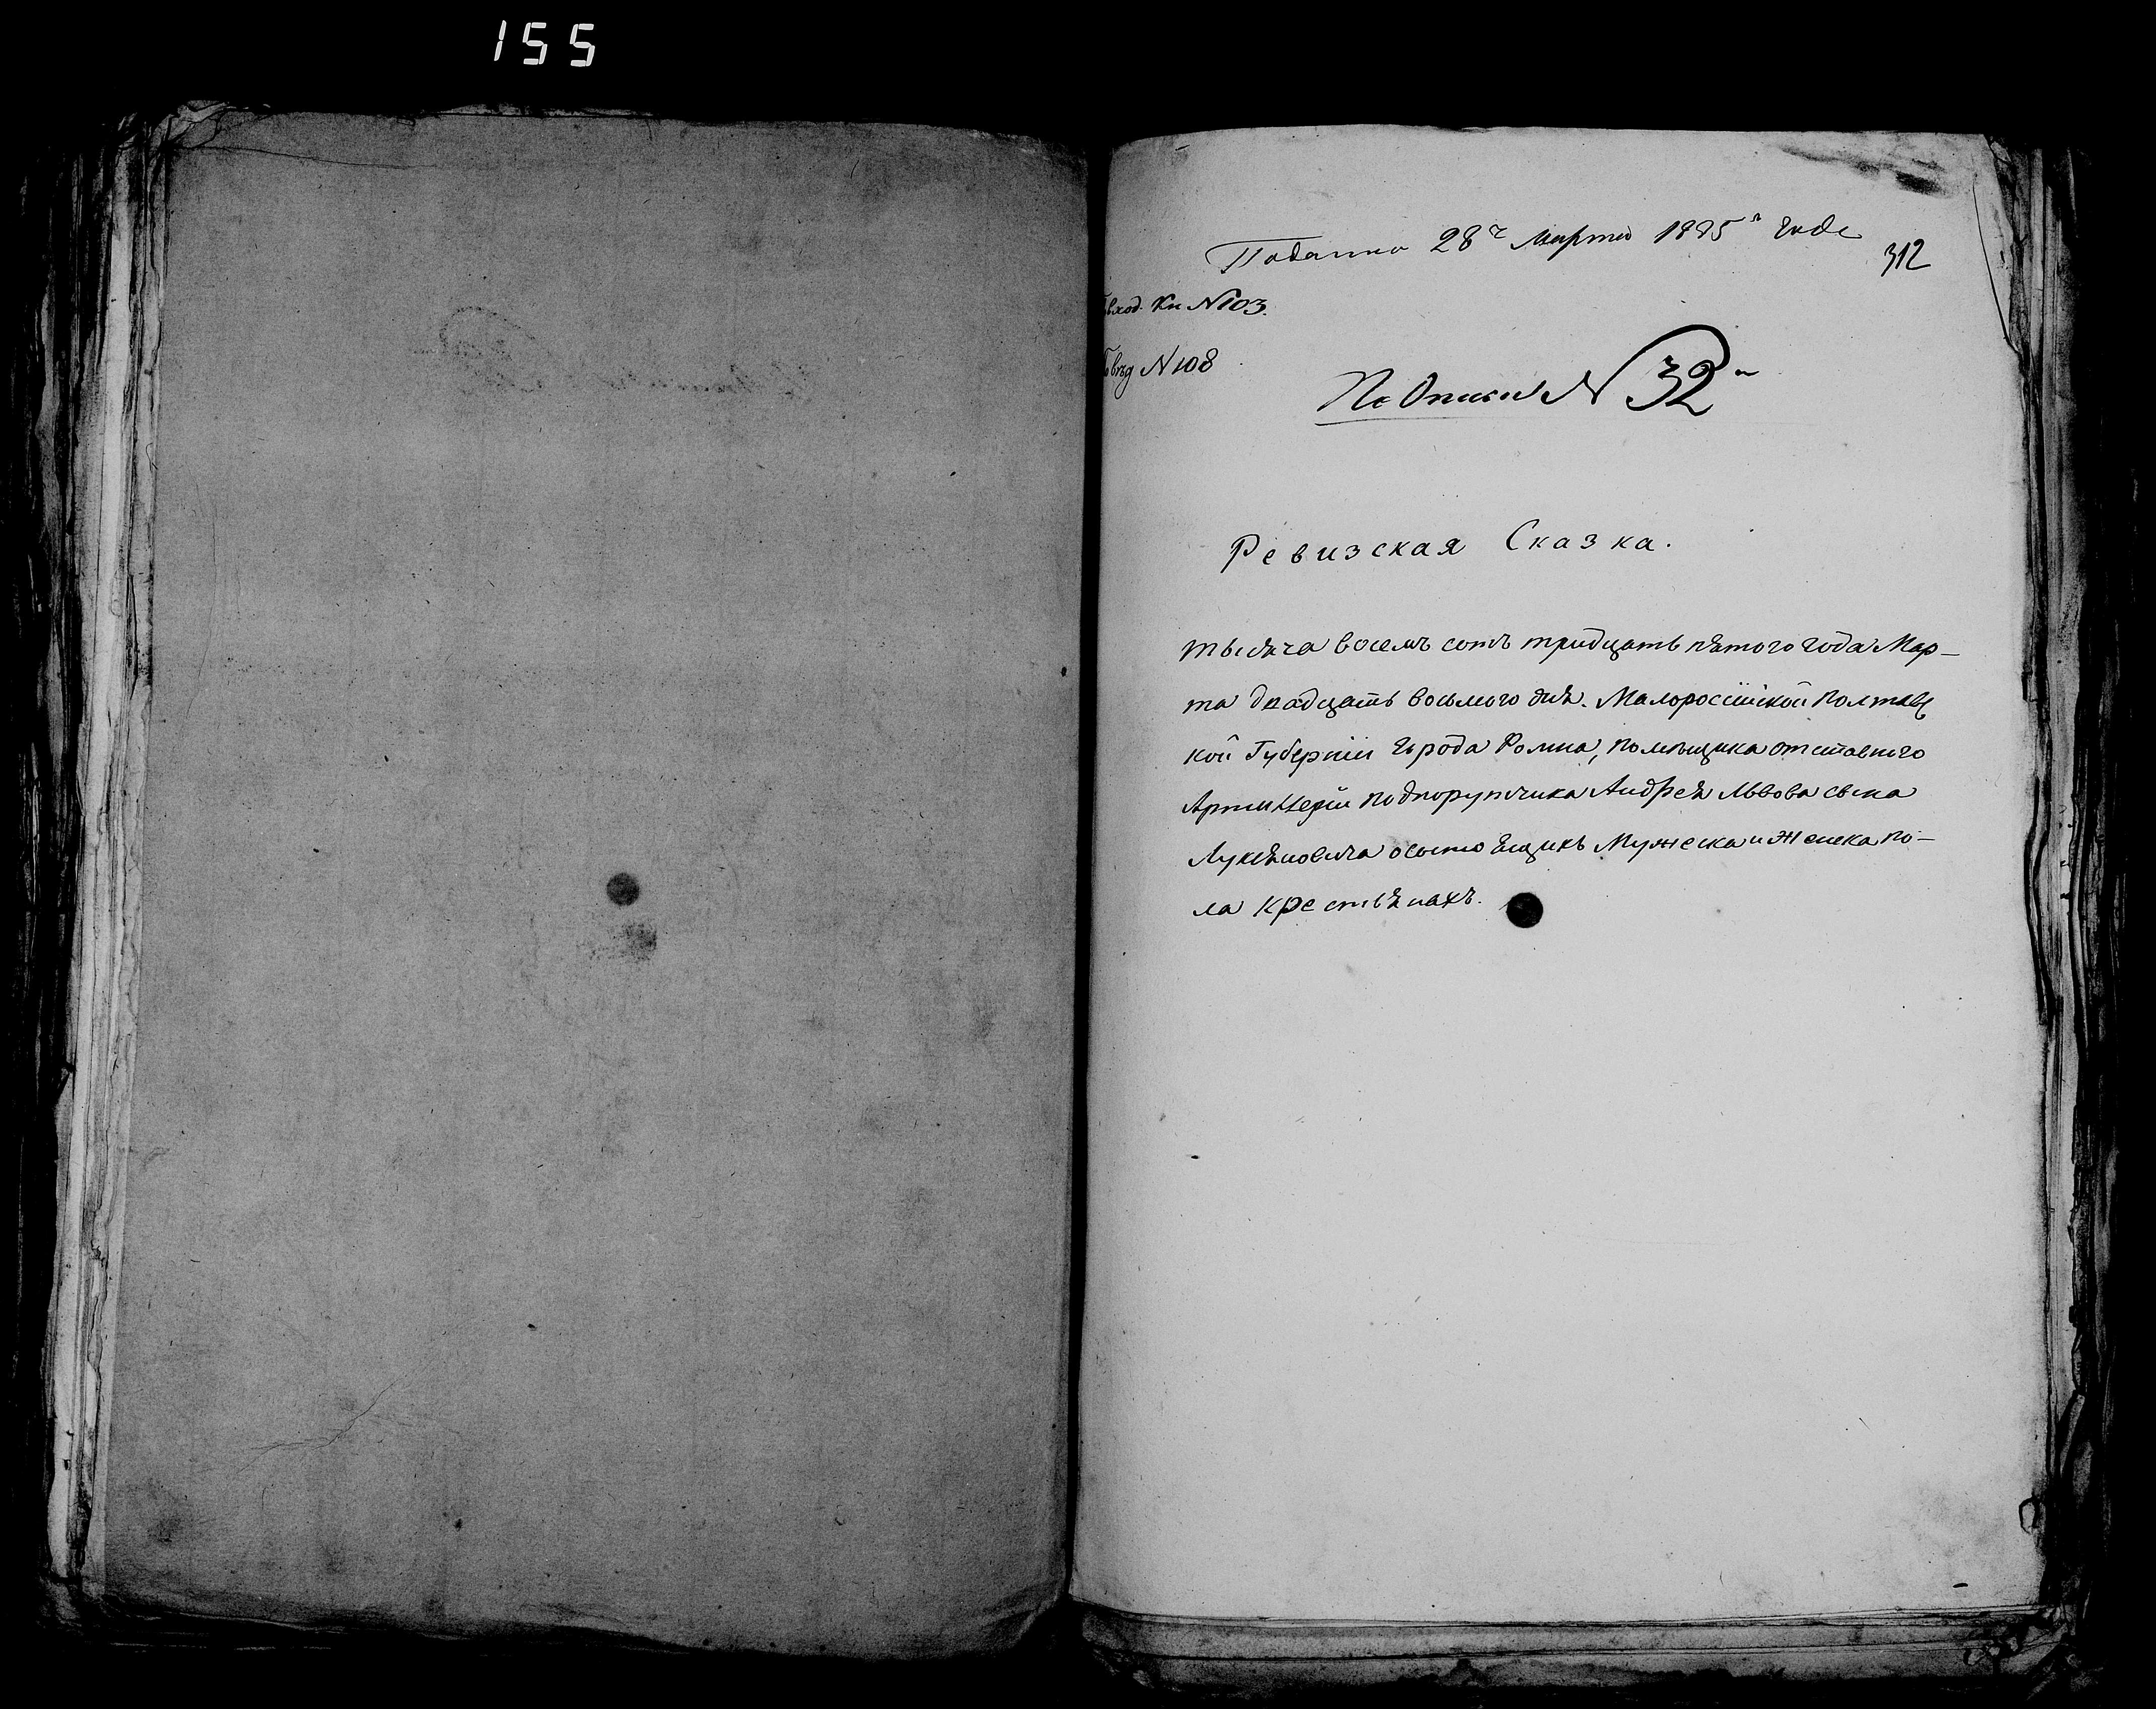 155
Поданно 28г Марта 1835г года
312
вход. Кн N103.
вѣд N108
По Описи N 32й
Ревизская Сказка.
тысяча восемъ сотъ тридцать пятого года Мар-
та двадцать восьмого дня. Малоросiйской Полтавс
кой Губернiи города Ромна, помѣщика отставного
Артиллерiи подпорутчика Андрея Львова сына
Лукяновича осьмо ящихъ Мужеска и Женска по-
ла крестьянахъ.